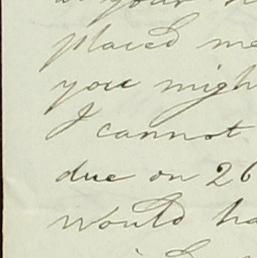 your
placed me
you migh
I cannot
due on 26
would ha